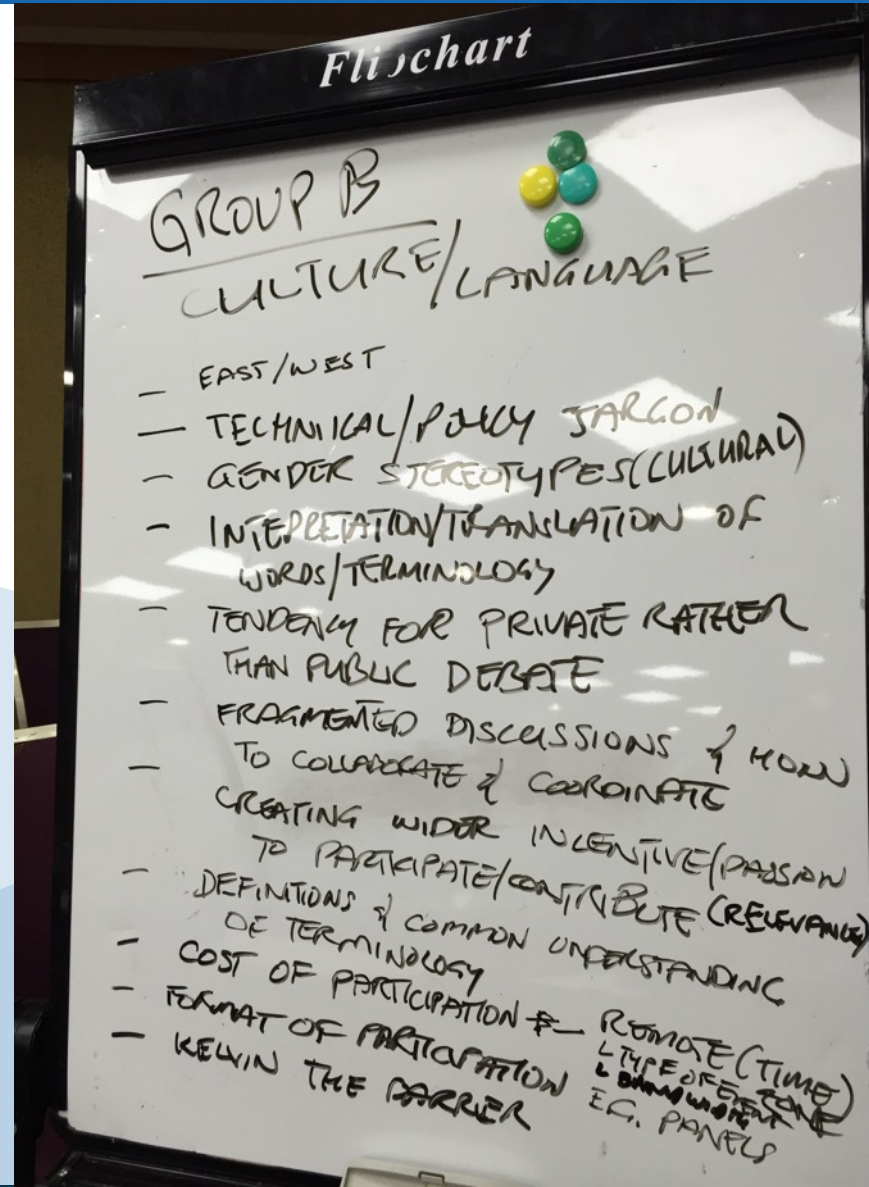 Flipchart
GROUP B
CULTURE/LANGUAGE
— EAST/WEST
— TECHNICAL/POLICY JARGON
— GENDER STEREOTYPES (CULTURAL)
— INTEPRETATION/TRANSLATION OF
WORDS/TERMINOLOGY
— TENDENCY FOR PRIVATE RATHER
THAN PUBLIC DEBATE
— FRAGMENTED DISCUSSIONS & HOW
TO COLLABORATE & COORDINATE
— CREATING WIDER INCENTIVE/PASSION
TO PARTICIPATE/CONTRIBUTE (RELEVANCE)
— DEFINITIONS & COMMON UNDERSTANDING
OF TERMINOLOGY
— COST OF PARTICIPATION — REMOTE (TIME
ZONE)
— FORMAT OF PARTICIPATION
L TYPE OF EVENT
L BANDWIDTH
E.G. PANELS
— KELVIN THE BARRIER